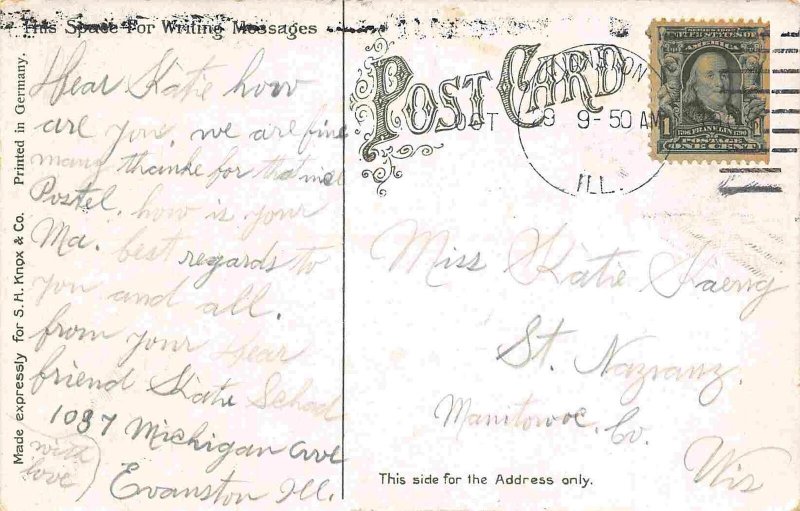 This Space For Writing Messages
Dear Katie how
are you, we are fine
many thanks for that nice
Postel. how is your
Ma. best regards to
you and all.
from your Dear
friend Katie Schod
1037 Michigan Ave
Evanston Ill.
with
love
Made expressly for S. H. Knox & Co. Printed in Germany.
POST CARD
OCT 9 9-50 AM
ILL.
SERIES 1902
UNITED STATES OF
AMERICA
1 1
1706 FRANKLIN 1790
POSTAGE
ONE CENT
Miss Katie
St. Nazianz.
Manitowoc. Co.
Wis
This side for the Address only.